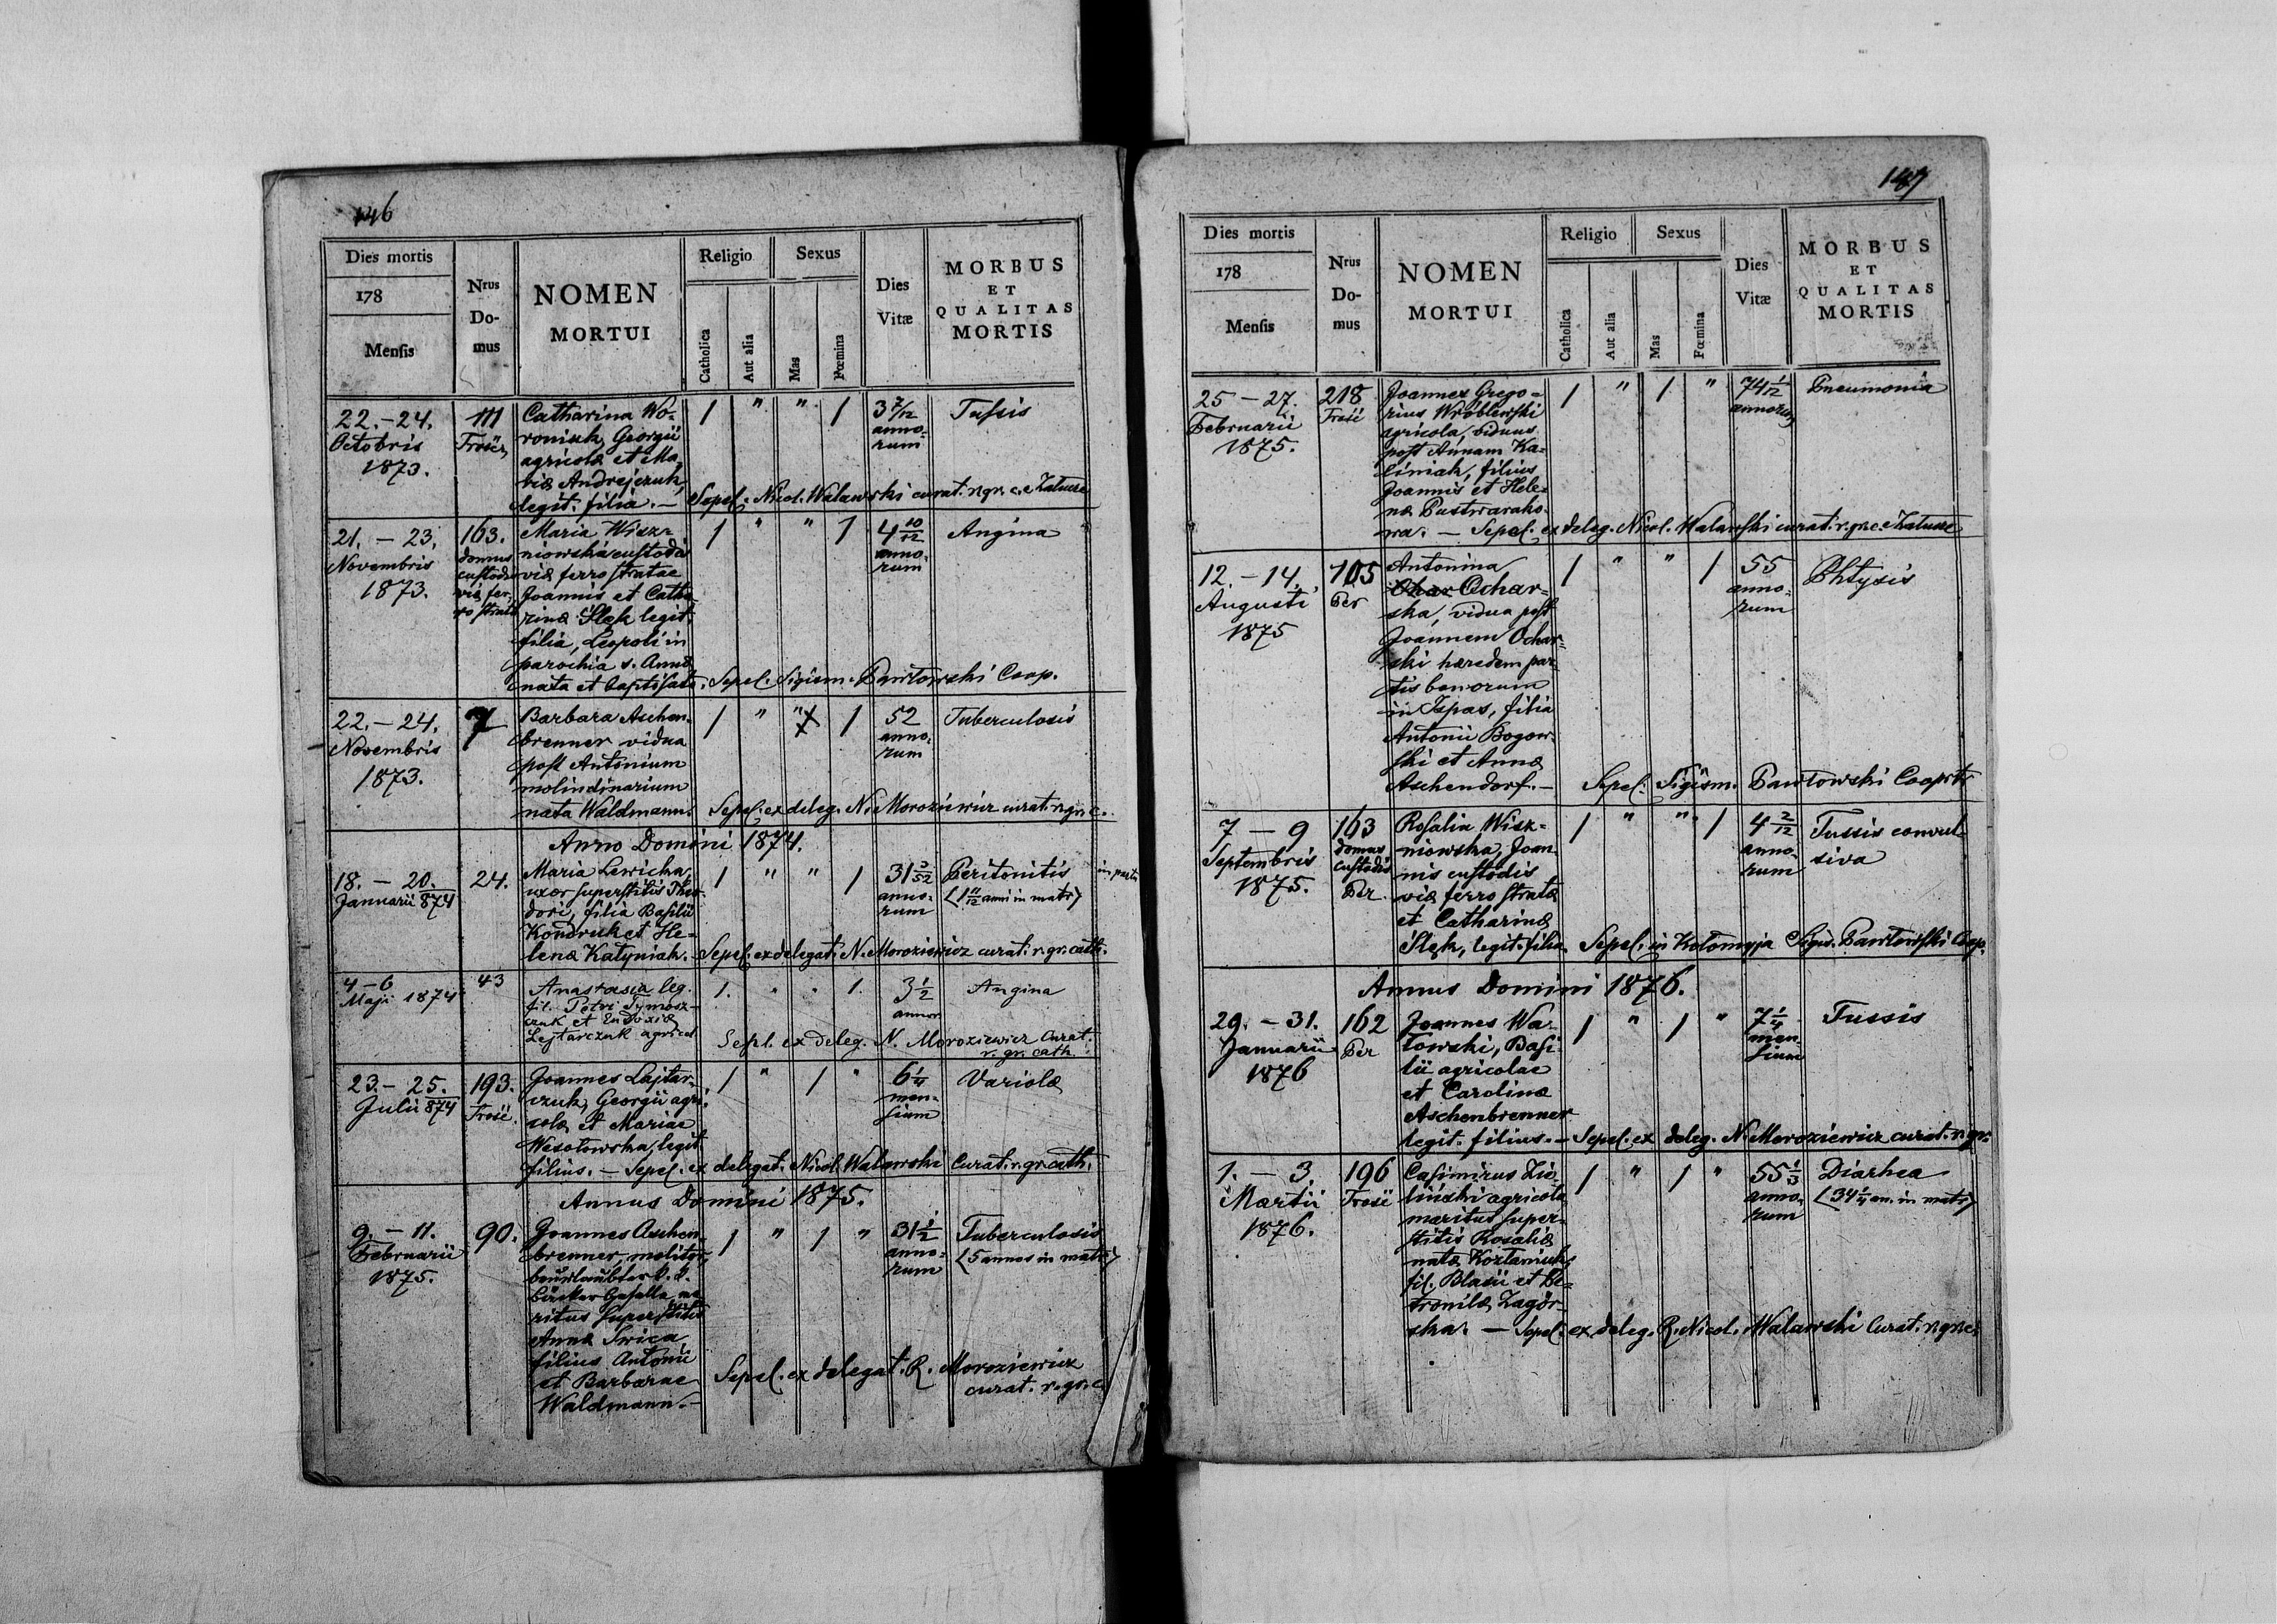 146
Dies mortis
178
Mensis
Nrus
Do-
mus
NOMEN
MORTUI
Religio
Catholica
Aut alia
Sexus
Mas
Fœmina
Dies
Vitæ
MORBUS
ET
QUALITAS
MORTIS
22.-24.
Octobris
1873.
111
Catharina Wo-
roniuk, Georgii
agricolæ et Ma
riæ Andrejczuk,
legit. filia. — Sepel. Nicol. Walawski curat. r. gr. c. e Załucze
1 " " 1
3 7/12
anno-
rum
Tussis
21. — 23.
Novembris
1873.
163.
domus
custodis
viæ fer-
ro stratæ
Maria Wisz-
niowska custodis
viæ ferro stratae
Joannis et Catha-
rinæ Slęk legit.
filia, Leopoli in
parochia s. Annæ
nata et baptisata. Sepel. Sigism. Pawłowski Coop.
1 " " 1
4 10/12
anno-
rum
Angina
22. — 24.
Novembris
1873.
7
Barbara Aschen-
brenner vidua
post Antonium
molindinarium
nata Waldmann. Sepel. ex deleg. N. Moroziewicz curat. r. gr. c.
1 " " 1
52
anno-
rum
Tuberculosis
Anno Domini 1874.
18. — 20.
Januarii 874
24.
Maria Lewicka,
uxor superstitis Theo-
dori, filia Basilii
Kondruk et He-
lenæ Kałyniak. Sepel. ex delegat. N. Moroziewicz curat. r. gr. cath.
1 " " 1
31
anno-
rum
Peritonitis
(1 11/12 anni in matr)
4 — 6
Maji 1874
43
Anastasia leg.
fil. Petri Tymosz-
czuk et Eudoxiæ
Lejtarczuk agricol.
1. " " 1.
3 1/2
annor
Angina
Sepl. ex deleg. N. Moroziewicz Curat.
r. gr. cath.
23. — 25.
Julii 874
193.
Joannes Lajtar-
czuk, Georgii agri-
colæ et Mariae
Wesołowska, legit
filius. — Sepel. ex delegat. Nicol. Walawski Curat. r. gr. cath.
1 " 1 "
6 1/4
men-
sium
Variolæ
Annus Domini 1875.
9. — 11.
Februarii
1875.
90.
Joannes Aschen-
brenner, molitor,
beurlaubter k. k.
Bäcker Geselle, ma-
ritus superstitis
Annæ
filius Antonii
et Barbarae
Waldmann. —
1 " 1 "
31 1/2
anno-
rum
Tuberculosis
(5 annos in matr)
Sepel. ex delegat. R. Moroziewicz
curat. r. gr. c.
147
Dies mortis
178
Mensis
Nrus
Do-
mus
NOMEN
MORTUI
Religio
Catholica
Aut alia
Sexus
Mas
Fœmina
Dies
Vitæ
MORBUS
ET
QUALITAS
MORTIS
25 — 27.
Februarii
1875.
218
Joannes Grego-
rius Wróblewski
agricola, viduus
post Annam Ka-
liniak, filius
Joannis et Hele-
næ Pustwarako-
wa. — Sepel. ex deleg. Nicol. Walawski curat. r. gr. c. e Załucze
1 " 1 "
74 1/12
annorum
Pneumonia
12. — 14.
Augusti
1875
105
Per
Antonina
Ochar-
ska, vidua post
Joannem Ochar-
ski hæredem par-
tis bonorum
in Ispas, filia
Antonii Bogow-
ski et Annæ
Aschendorf. — Sepel. Sigism. Pawłowski Cooprtr
1 " " 1
55
anno-
rum
Phtysis
7 — 9
Septembris
1875.
163
domus
custodis
Per
Rosalia Wisz-
niowska, Joan-
nis custodis
viæ ferro stratæ
et Catharinæ
Slęk, legit. filia. Sepel. in Kołomyja Sigis. Pawłowski Coop.
1 " " 1
4 2/12
anno-
rum
Tussis convul-
siva
Annus Domini 1876.
29. — 31.
Januarii
1876
162
Per
Joannes Wa-
towski, Basi-
lii agricolae
et Carolinæ
Aschenbrenner
legit. filius. — Sepel. ex deleg. N. Moroziewicz curat. r. gr.
1 " 1 "
7 1/4
men-
sium
Tussis
1. — 3.
Martii
1876.
196
Casimirus Zie-
liński agricola
maritus super-
stitis Rosaliæ
natæ Kozłaniuk,
fil. Blasii et Pe-
tronilæ Zagór-
ska. — Sepel. ex deleg. R. Nicol. Walawski Curat. r. gr. c.
1 " 1 "
55 1/3
anno-
rum
Diarhea
(34 1/4 an. in matr)